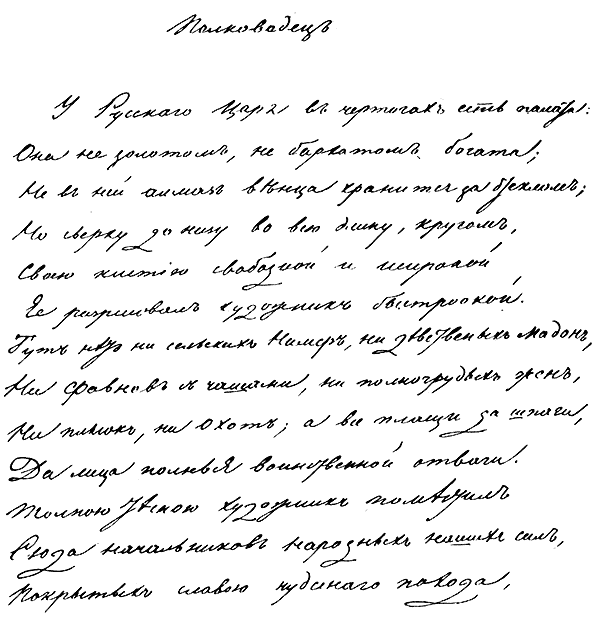 Полководецъ
У Русскаго Царя въ чертогахъ есть палата:
Она не золотомъ, не бархатомъ богата;
Не въ ней алмазъ вѣнца хранится за стекломъ;
Но сверху до низу во всю длину, кругомъ,
Своею кистію свободной и широкой
Ее разрисовалъ художникъ быстроокой.
Тутъ нѣтъ ни сельскихъ Нимфъ, ни дѣвственыхъ мадонъ,
Ни Фавновъ съ чашами, ни полногрудыхъ женъ,
Ни плясокъ, ни охотъ; а все плащи да шпаги,
Да лица полныя воинственной отваги.
Толпою тѣсною художникъ помѣстилъ
Сюда начальниковъ народныхъ нашихъ силъ,
Покрытыхъ славою чуднаго похода,